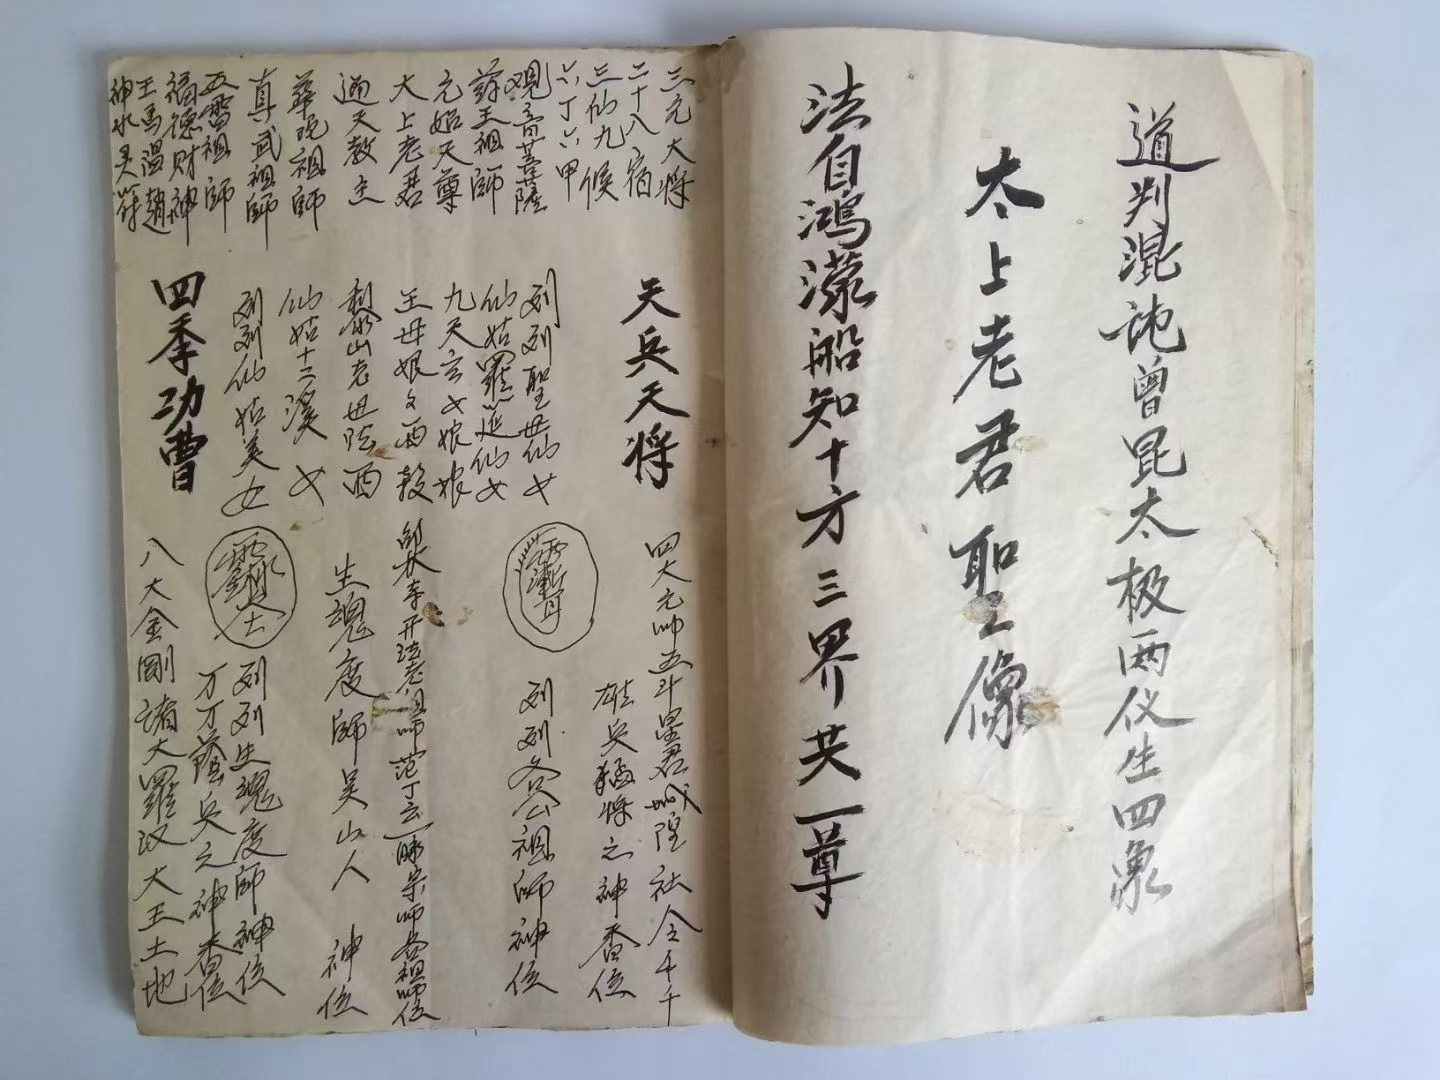 道判混沌曾昆太极两仪生四象
太上老君聖像
法自鴻濛船知十方三界共一尊
三元大将
二十八宿
三仙九候
六丁六甲
观音菩薩
蒋王祖師
元始天尊
大上老君
通天教主
華光祖師
真武祖師
五雷祖師
福德财神
王馬温趙
神水吴
天兵天将
列列聖母仙女
仙姑羅延仙女
九天玄女娘娘
王母娘女西殺
黎山老母陰西
仙姑十二溪女
列列仙姑美女
四季功曹
四大元帅五斗星君城隍社令千千
雄兵猛将之神香位
列列各公祖师神位
邱 李開法老祖师范丁玄一脉宗师各祖师位
生魂度師吴山人神位
列列生魂度師神位
万万蔭兵之神香位
八大金剛諸大羅汉大王土地